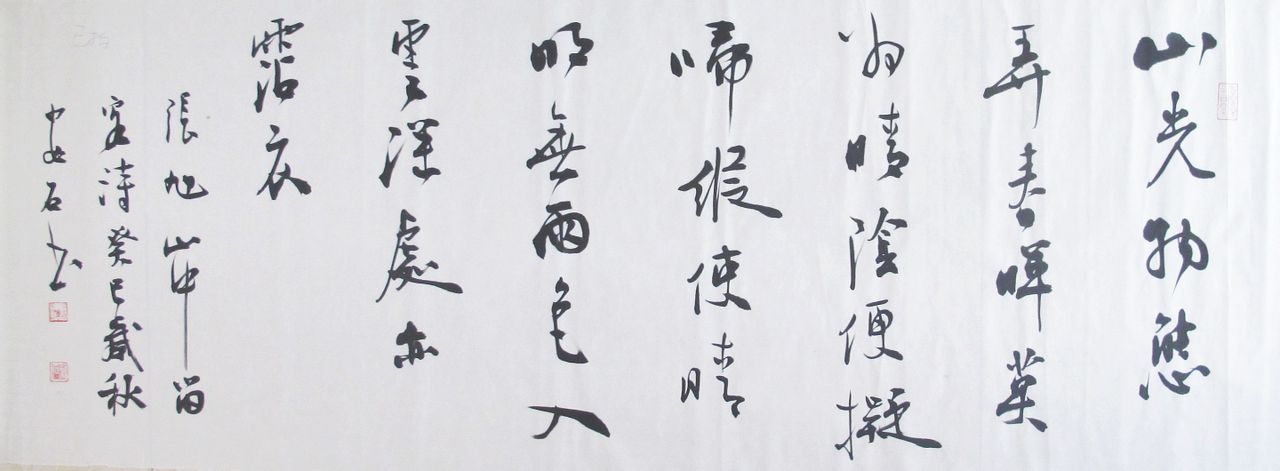 山光物態
弄春暉莫
為晴陰便擬
歸縱使晴
明無雨色入
雲深處亦
霑衣
張旭山中留
客詩癸巳歲秋
石书